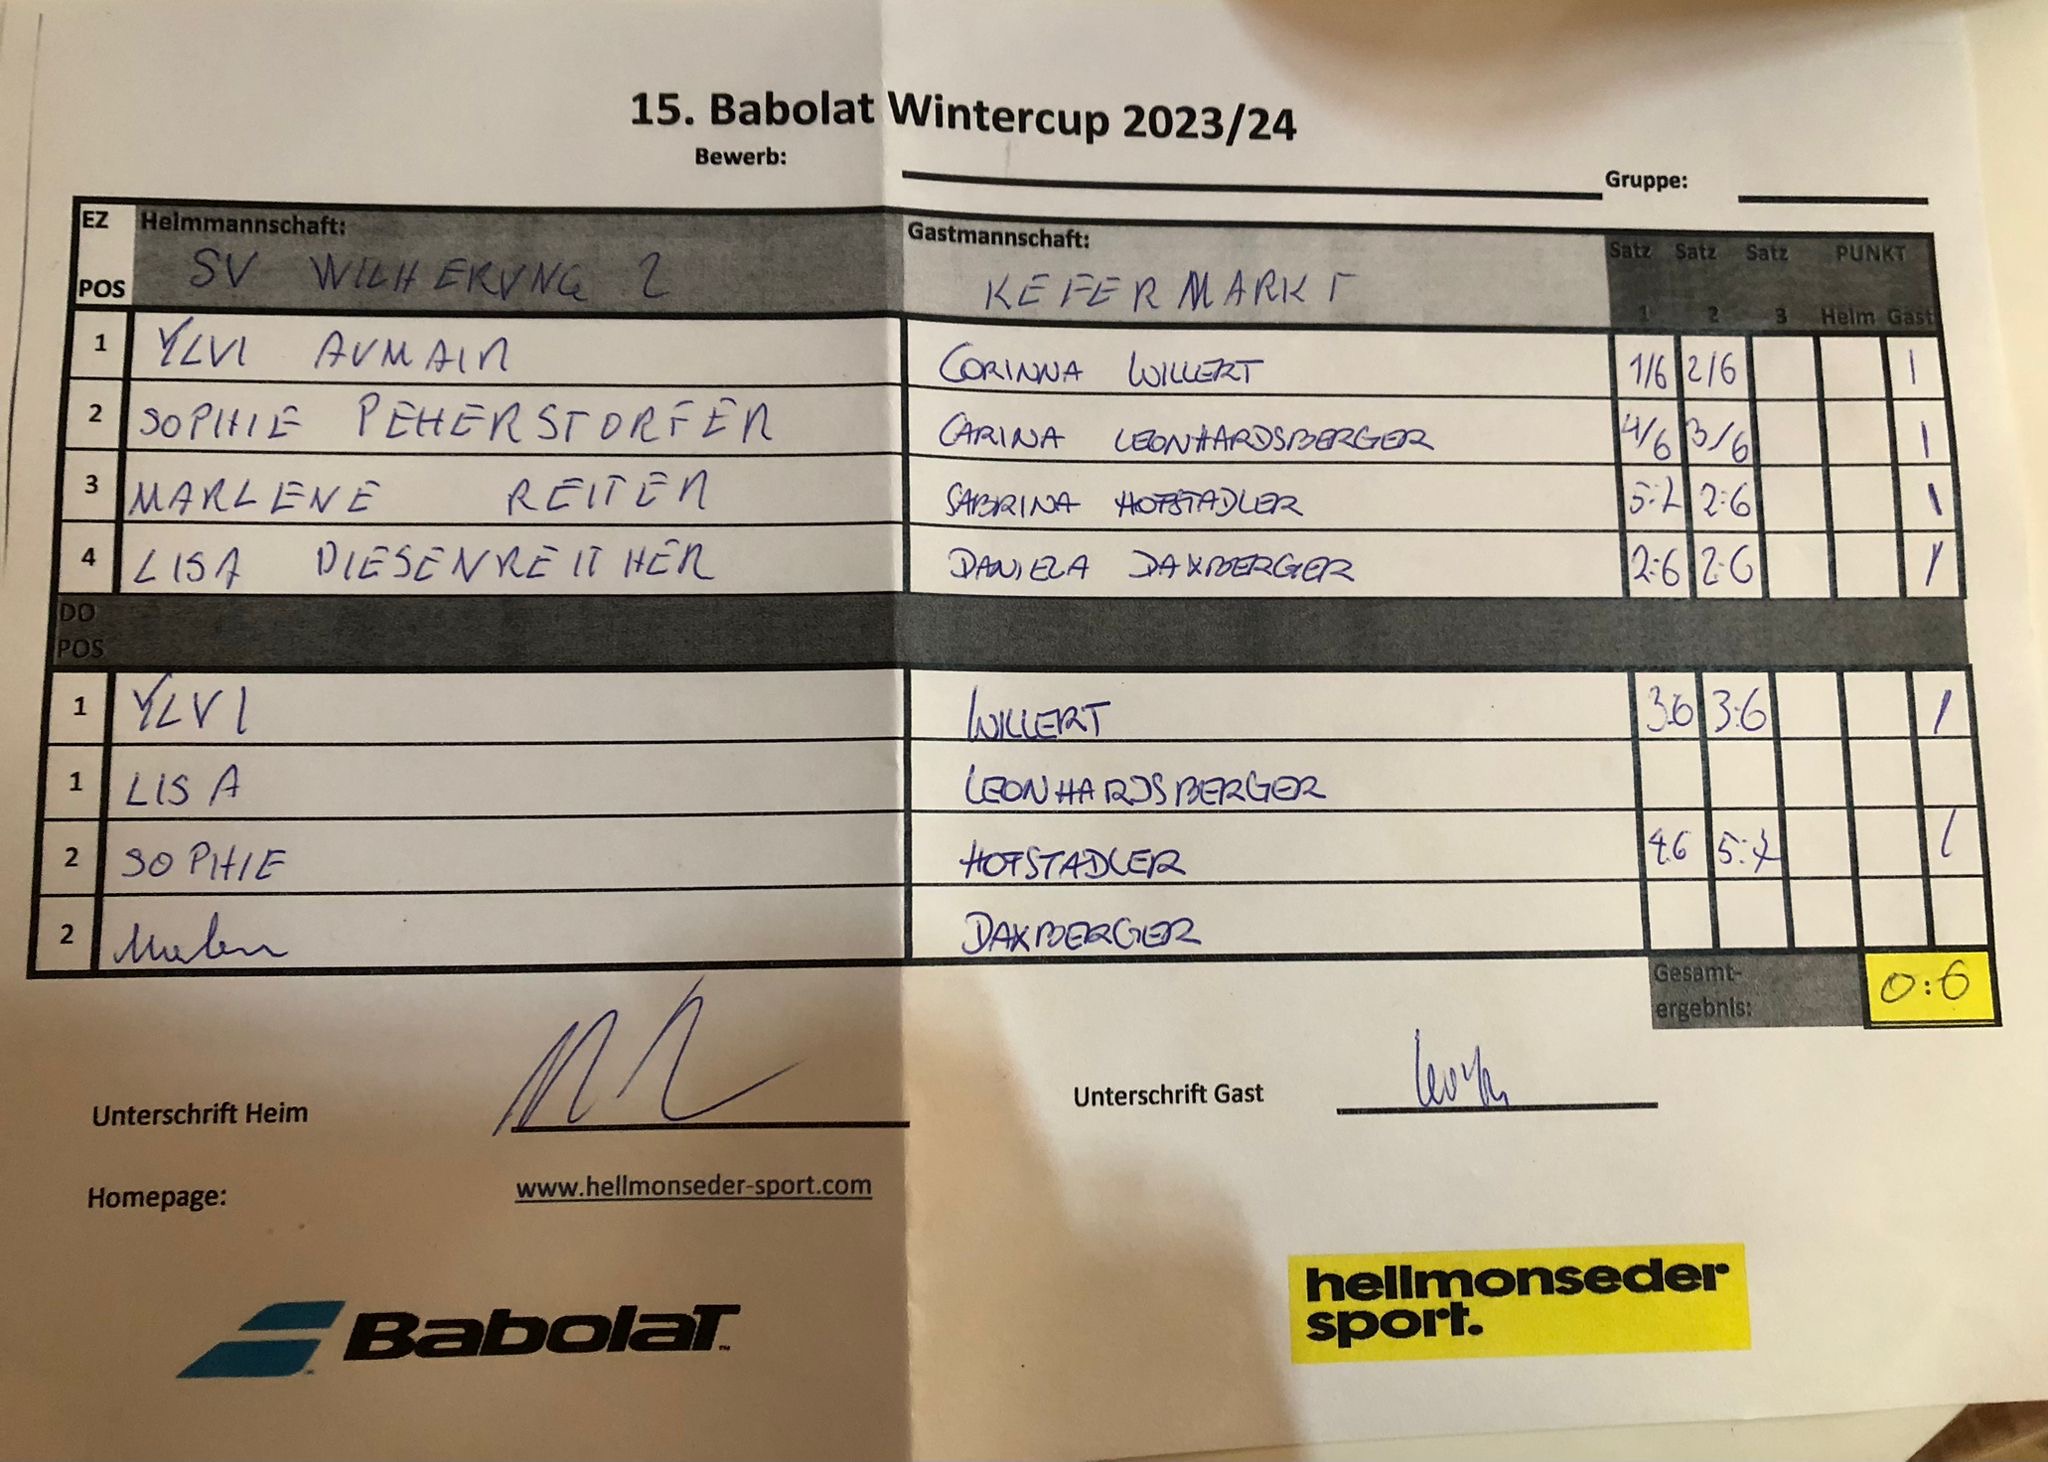 15. Babolat Wintercup 2023/24
Bewerb:
Gruppe:
EZ POS Heimmannschaft: Gastmannschaft: Satz 1 Satz 2 Satz 3 PUNKT Heim Gast
SV WILHERUNG 2 KEFERMARKT
1 YLVI AUMAIR CORINNA WILLERT 1/6 2/6 1
2 SOPHIE PEHERSTORFER CARINA LEONHARDSBERGER 4/6 3/6 1
3 MARLENE REITER SABRINA HOFSTADLER 5:7 2:6 1
4 LISA DIESENREITHER DANIELA DAXBERGER 2:6 2:6 1
DO POS
1 YLVI WILLERT 3:6 3:6 1
1 LISA LEONHARDSBERGER
2 SOPHIE HOFSTADLER 4:6 5:7 1
2 DAXBERGER
Gesamt-
ergebnis: 0:6
Unterschrift Heim Unterschrift Gast
Homepage: www.hellmonseder-sport.com
BabolaT
hellmonseder
sport.